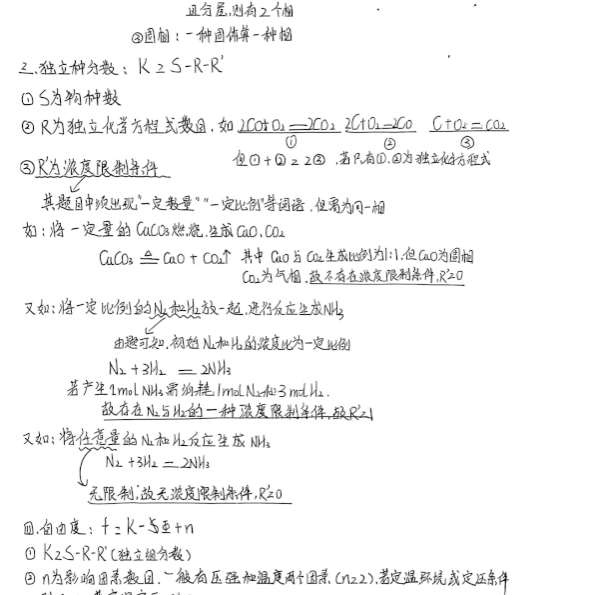 且分层,则有2个相
③固相:一种固体算一种相
三.独立种分数: K=S-R-R'
① S为物种数
② R为独立化学方程式数目,如 2CO+O₂=2CO₂ 2C+O₂=2CO C+O₂=CO₂
① ② ③
但①+②=2③,若只有①,因为独立化学方程式
③ R'为浓度限制条件
其题目中须出现"一定数量""一定比例"等词语,但需为同一相
如:将一定量的CaCO₃燃烧,生成CaO,CO₂
CaCO₃ ≜ CaO + CO₂↑ 其中CaO与CO₂生成比例为1:1,但CaO为固相
CO₂为气相,故不存在浓度限制条件,R'=0
又如:将一定比例的N₂和H₂放一起,进行反应生成NH₃
由题可知,初始N₂和H₂的浓度比为一定比例
N₂+3H₂ = 2NH₃
若产生2molNH₃需消耗1molN₂和3molH₂.
故存在N₂与H₂的一种浓度限制条件,故R'=1
又如:将任意量的N₂和H₂反应生成NH₃
N₂+3H₂=2NH₃
无限制,故无浓度限制条件,R'=0
四.自由度: f=K-Φ+n
① K=S-R-R'(独立组分数)
② n为影响因素数目,一般有压强和温度两个因素(n=2),若定温环境或定压条件